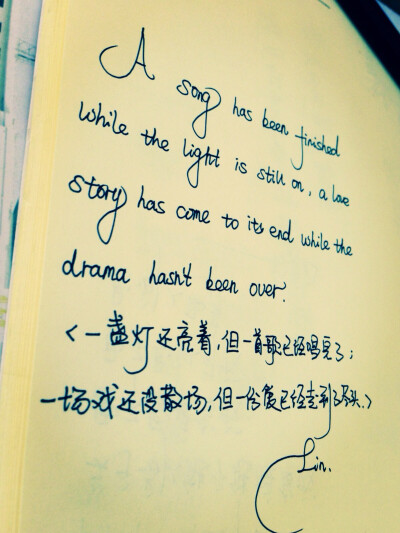 A song has been finished
while the light is still on, a love
story has come to its end while the
drama hasn't been over.
<一盏灯还亮着,但一首歌已经唱完了;
一场戏还没散场,但一份爱已经走到了尽头。>
Lin.